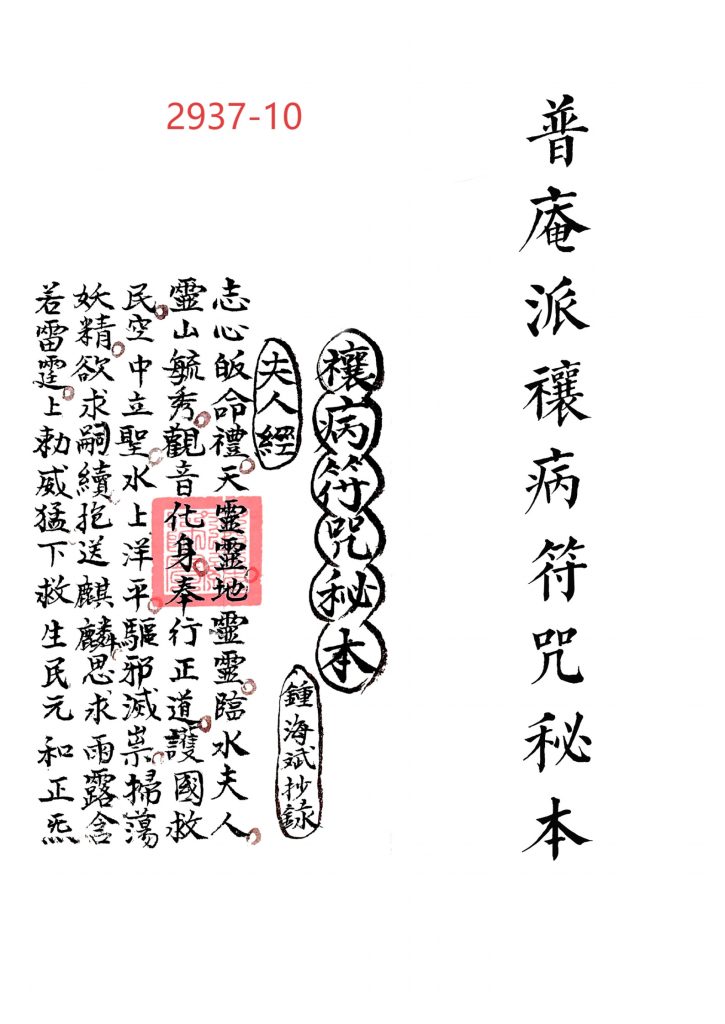 2937-10
普庵派禳病符咒秘本
禳病符咒秘本
鍾海斌抄録
夫人經
志心皈命禮天靈靈地靈靈臨水夫人
靈山毓秀觀音化身奉行正道護國救
民空中立聖水上洋平驅邪滅祟掃蕩
妖精欲求嗣續抱送麒麟思求雨露含
若雷霆上勅威猛下救生民元和正炁